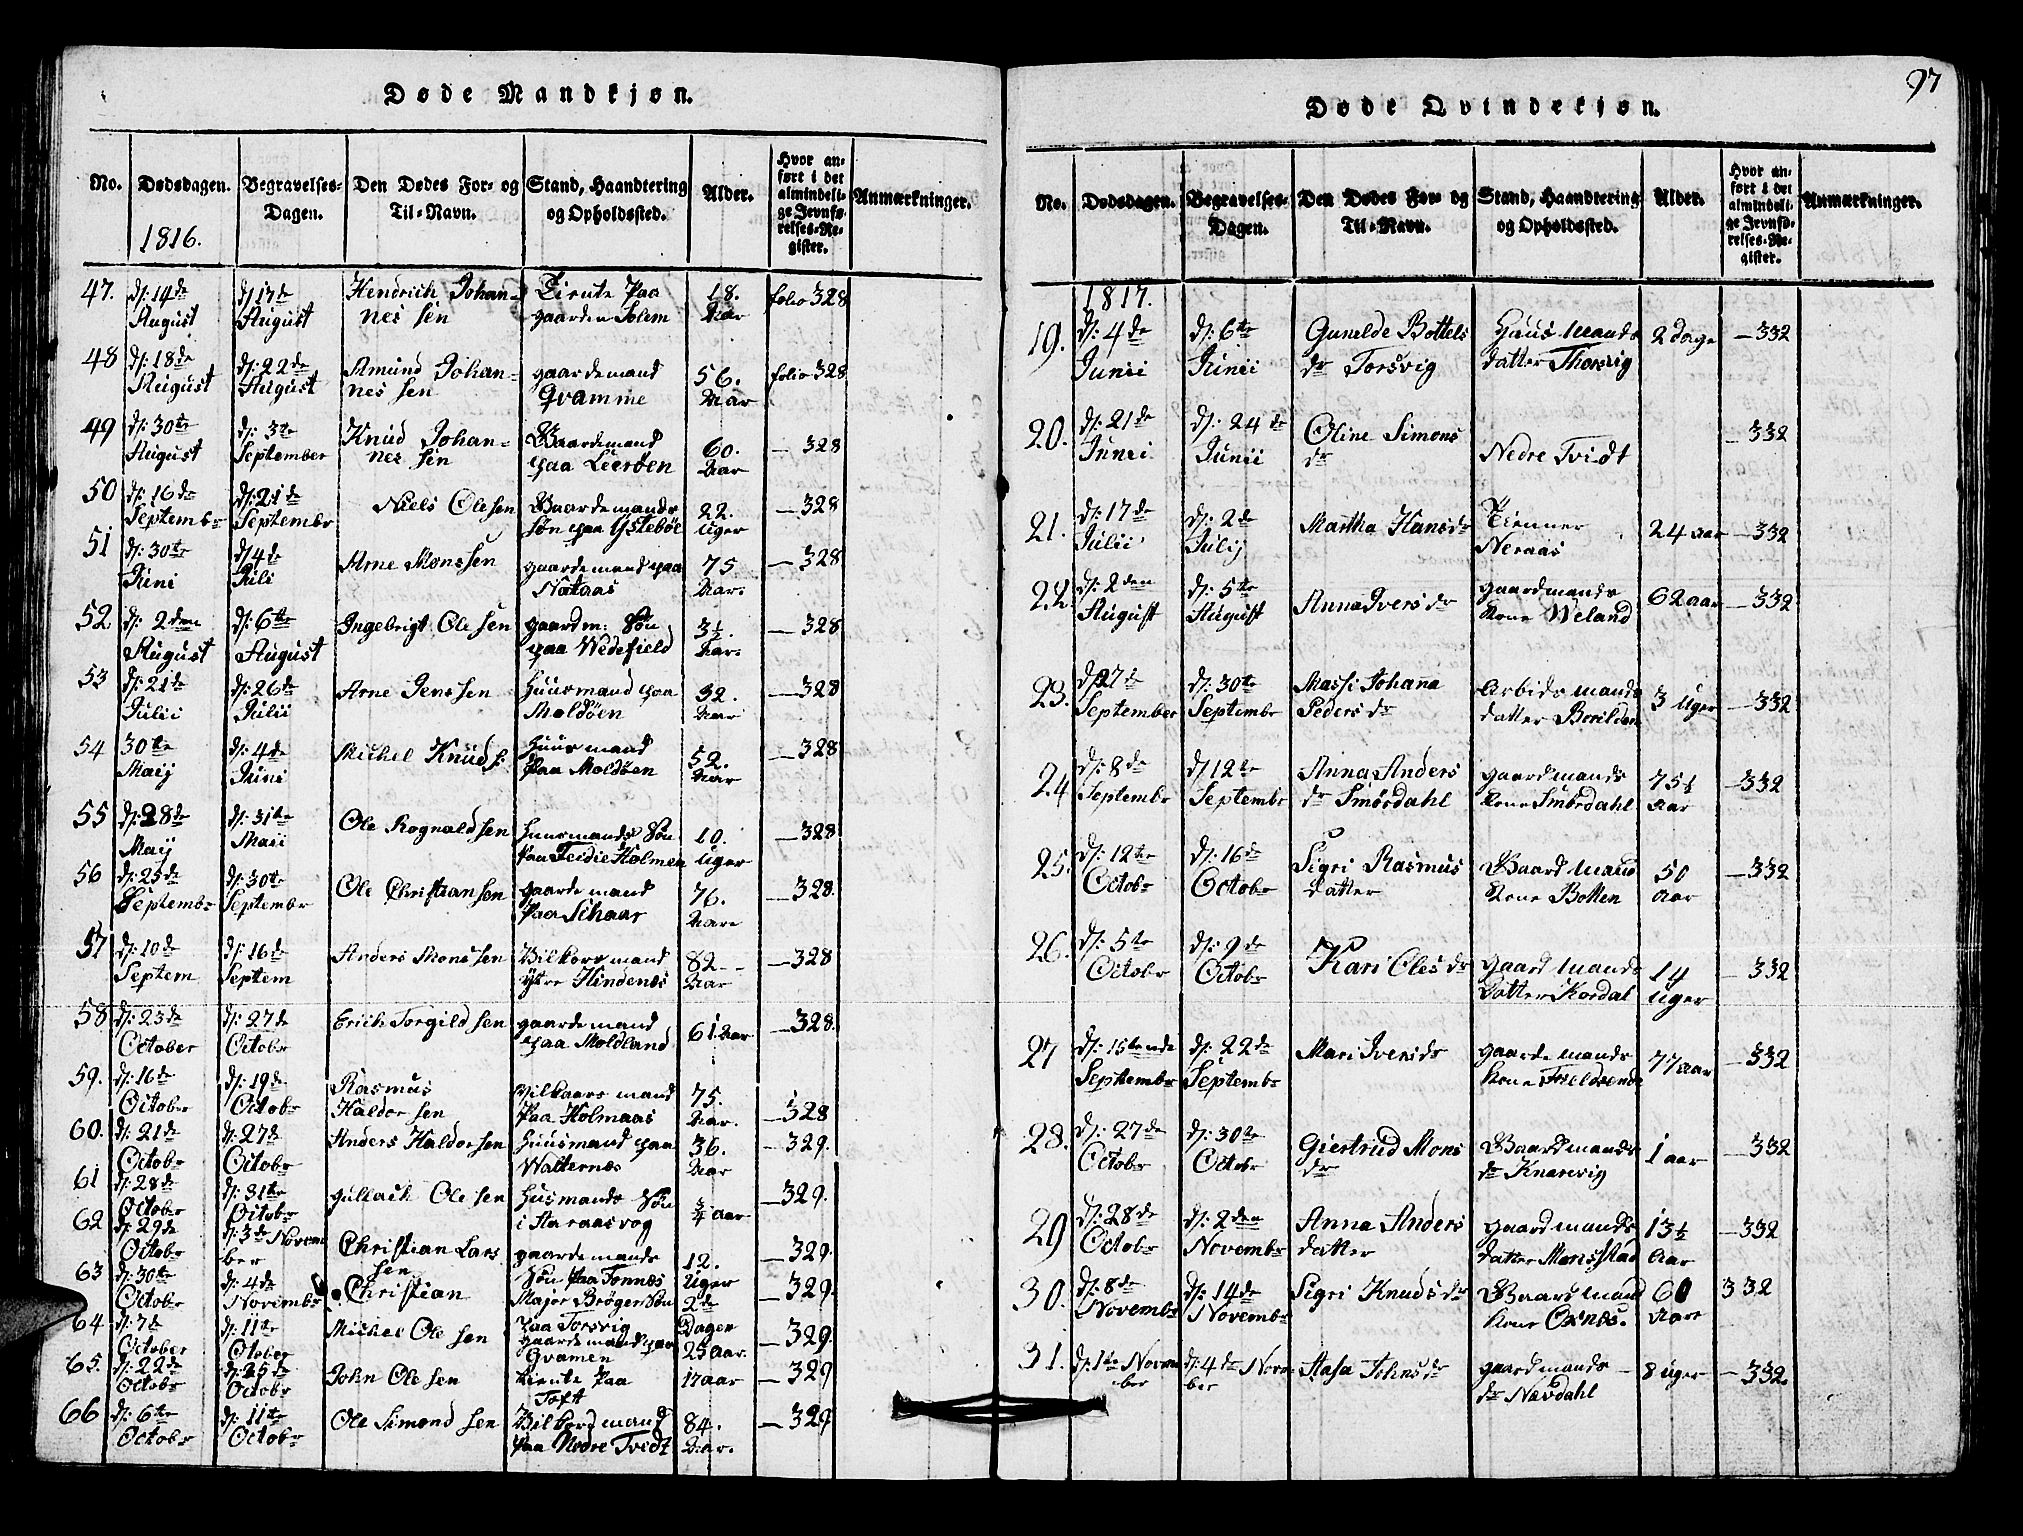 Døde Mandkjøn.
No. Dødsdagen. Begravelses-Dagen. Den Dødes For- og Til-Navn. Stand, Haandtering og Opholdssted. Alder. Hvor anført i det almindelige Jevnførelses-Register. Anmærkninger.
1816.
47. d: 14de August d: 17de August Hendrich Johannes sen Tiente paa gaarden Solem 18. Aar folio 328
48 d: 18de August d: 22de August Amund Johannes sen gaardemand Qvamme 56. Aar folio 328
49 d: 30te August d: 3te September Knud Johannes sen Gaardemand paa Leerøen 60. Aar — 328
50 d: 16de Septembr d: 21de Septembr Niels Olesen Gaardemands søn paa Ystebøe 22. Uger — 328
51 d: 30te Juni d: 4de Juli Arne Monssen gaardemand paa Nataas 75 Aar. — 328
52. d: 2den August d: 6te August Ingebrigt Olesen gaardm: Søn paa Wedefield 3½. Aar. — 328
53 d: 21de Julii d: 26de Julii Arne Jenssen Huusmand paa Moldøen 32. Aar — 328
54 30te Maij d: 4de Juni Michel Knuds: Huusmand paa Moldøen 52. Aar — 328
55 d: 28de Maij d: 31te Maii Ole Rognaldsen Huusmands Søn paa Feidie Holmen 10. Uger — 328
56 d: 25de Septembr d: 30te Septembr Ole Christiansen gaardemand paa Schaar 76. Aar. — 328
57 d: 10de Septem d: 16de Septem Anders Monssen Vilkorsmand ytre Hindenæs 82 — Aar — 328
58 d: 23de October d: 27de October Erich Torgildsen gaardemand paa Moldland 61. Aar — 328
59. d: 16de October d: 19de Octobr Rasmus Haldorsen Vilkaarsmand paa Holmaas 75. Aar. — 328
60. d: 21de Octobr d: 27de Octobr Anders Haldorsen Huusmand paa Walternæs 36. Aar — 329.
61 d: 28de Octobr d: 31te Octobr Gullach Olesen Husmands Søn ¾ aar — 329.
62 d: 29de Octobr d: 3de November Christian Lars sen gaardemands Søn paa Tonnæs 12. Uger — 329
63 d: 30te Octobr d: 4de Novembr Christian Major Brøgers Søn paa Torsvig 2de Dager — 329.
64 d: 7de October d: 11te Otober Michel Olesen gaardemand paa Qvamen 25 aar. — 329
65. d: 22de Octobr d: 25de Octobr John Olesen tiente paa Toft 17 aar — 329
66 d: 6te Octobr d: 11te Octobr Ole Simonssen Vilkorsmand paa Nedre Tvidt 84. Aar. — 329
97
Døde Qvindekjøn.
No. Dødsdagen. Begravelses-Dagen. Den Dødes For- og Til-Navn. Stand, Haandtering og Opholdssted. Alder. Hvor anført i det almindelige Jevnførelses-Register. Anmærkninger.
1817.
19. d: 4de Junii d: 6te Junii Gunilde Bottels dr Torsvig Huus Mands datter Thorsvig 2 dage — 332
20. d: 21de Junii d: 24de Junii Oline Simons dr Nedre Tvidt — 332
21. d: 17de Julii d: 2de Julij Martha Hansdr Tienner Neraas 24 aar — 332
22. d: 2den August d: 5te August Anna Iversdr gaardmands Kone Weland 62 aar — 332
23. d: 27de September d: 30te Septembr Massi Johana Pedersdr Arbids mands datter Borilden 3 Uger — 332
24 d: 8de Septembr d: 12te Septembr Anna Anders dr Smørdahl gaardmands Kone Smørdahl 75½ Aar — 332
25. d: 12te Octobr d: 16de Octobr Sigri Rasmus datter Gaardmand Kone Botten 50 Aar — 332
26. d: 5te Octobr d: 9de Octobr Kari Olesdr gaardmands Datter Kordal 14 Uger — 332
27 d: 15tende Septembr d: 22de Septembr Mari Iversdr gaardemands Kone Fieldsende 77 aar — 332
28. d: 27de Octobr d: 30te Octobr Giertrud Mons dr Gaardmands dr Knarvig 1 aar — 332
29 d: 28de Octobr d: 2den Novembr Anna Anders datter gaardmands datter Monsstad 13½ Aar — 332
30. d: 8de Novembr d: 14de Novembr Sigri Knudsdr Gaardmand Kone Oxnæs. 60 Aar 332
31. d: 1te November d: 4de November Aasa Johnsdr gaardmands dr Næsdahl 8 Uger — 332